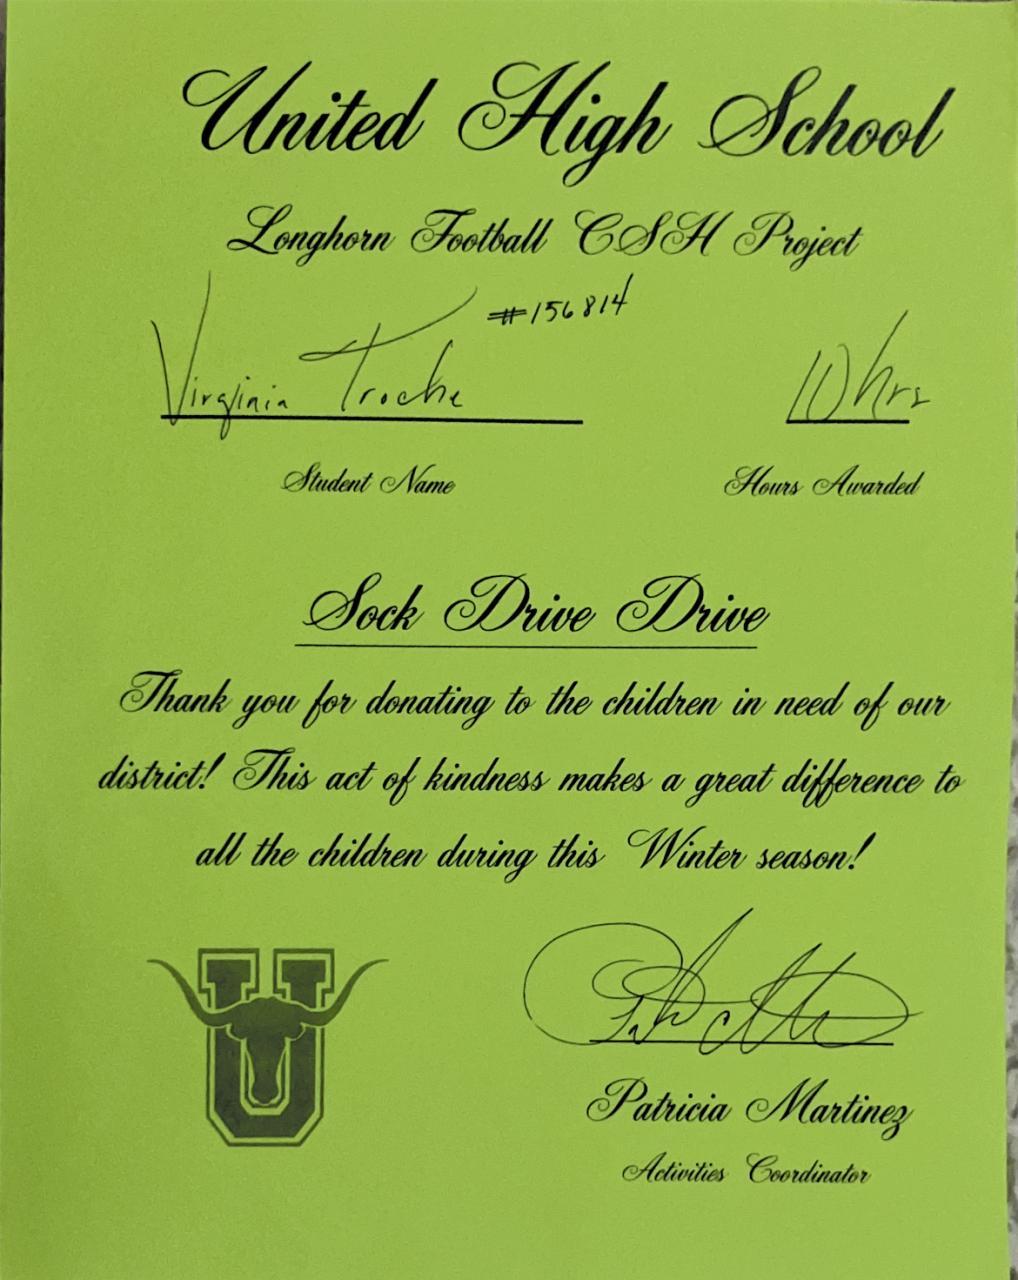 United High School
Longhorn Football CSH Project
#156814
Virginia Troche
10 hrs
Student Name
Hours Awarded
Sock Drive Drive
Thank you for donating to the children in need of our
district! This act of kindness makes a great difference to
all the children during this Winter season!
U
Patricia Martinez
Activities Coordinator